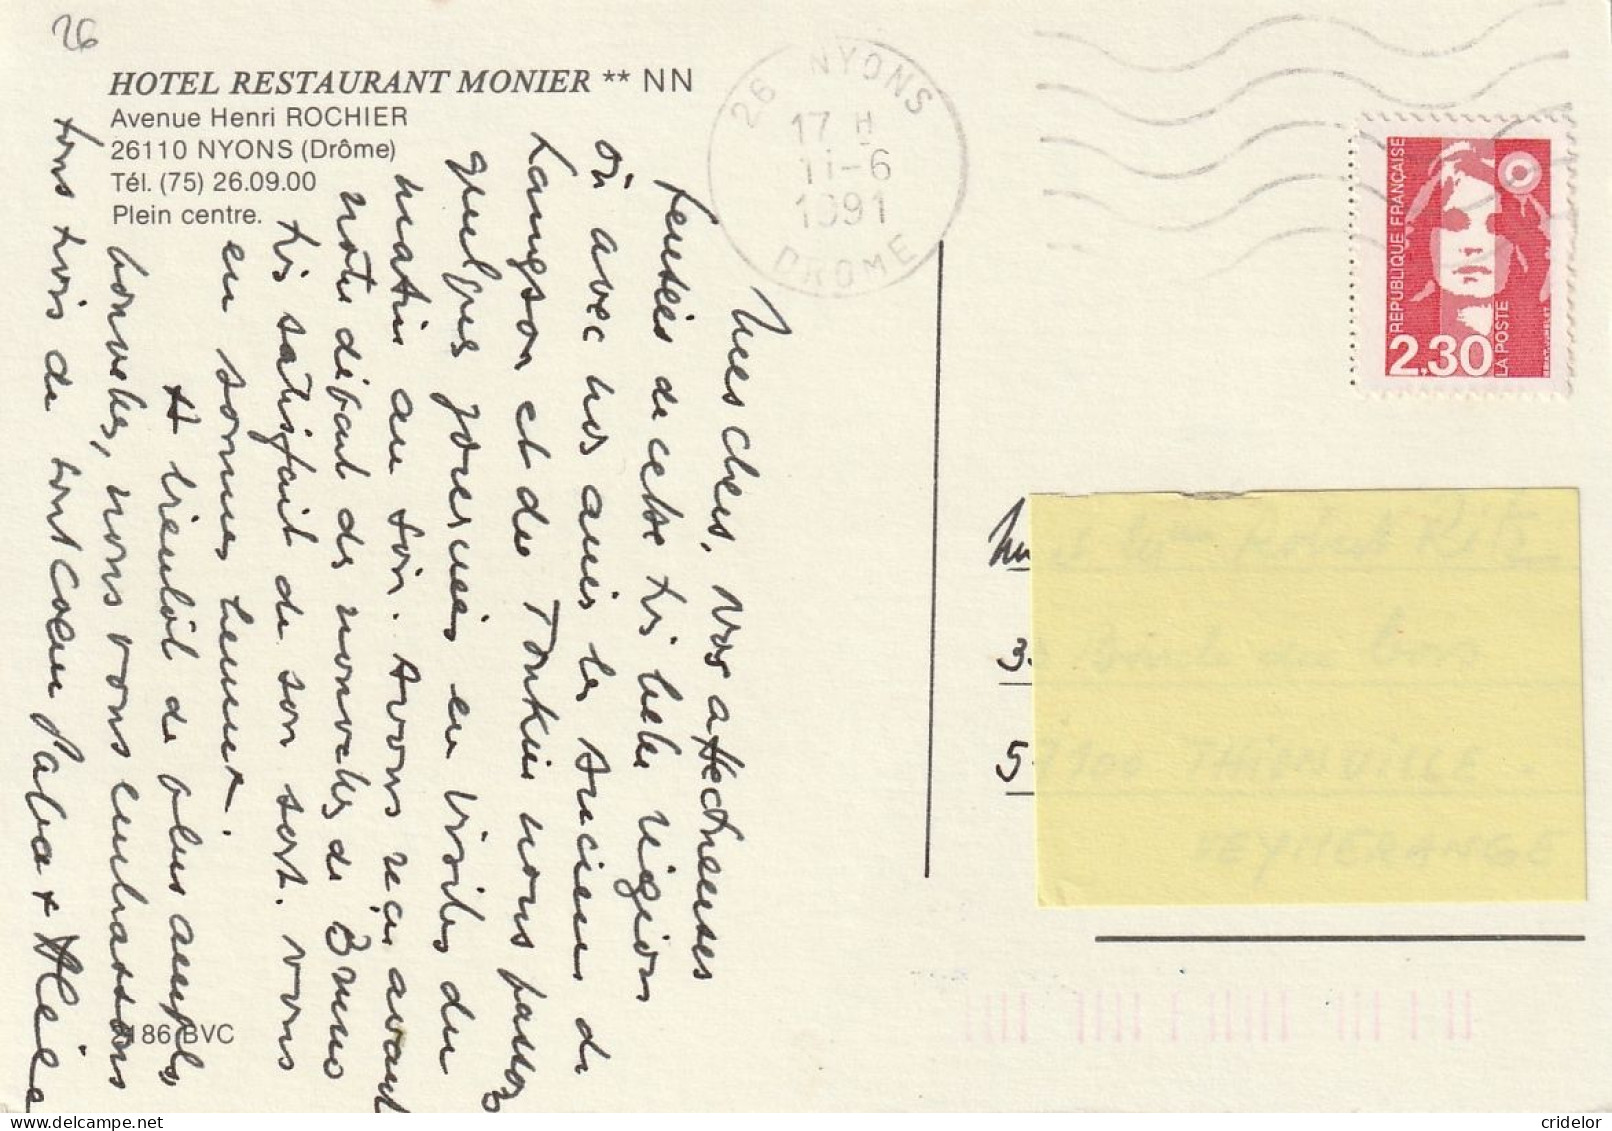 26
HOTEL RESTAURANT MONIER ** NN
Avenue Henri ROCHIER
26110 NYONS (Drôme)
Tél. (75) 26.09.00
Plein centre.
26 NYONS
17 H
11-6
1991
DROME
RÉPUBLIQUE FRANÇAISE
2,30
LA POSTE
Mes chers, Nos affectueuses
pensées de cette très belle région
où avec nos amis les Anciens de
Langson et du Tonkin nous passons
quelques journées en visites du
matin au soir. Avons reçu avant
notre départ des nouvelles de Bruno
très satisfait de son sort. Nous
en sommes heureux.
A bientôt de plus amples
nouvelles, nous vous embrassons
tous trois de tout coeur
3.
5
THIONVILLE
VEYMERANGE
186 BVC
cridelor